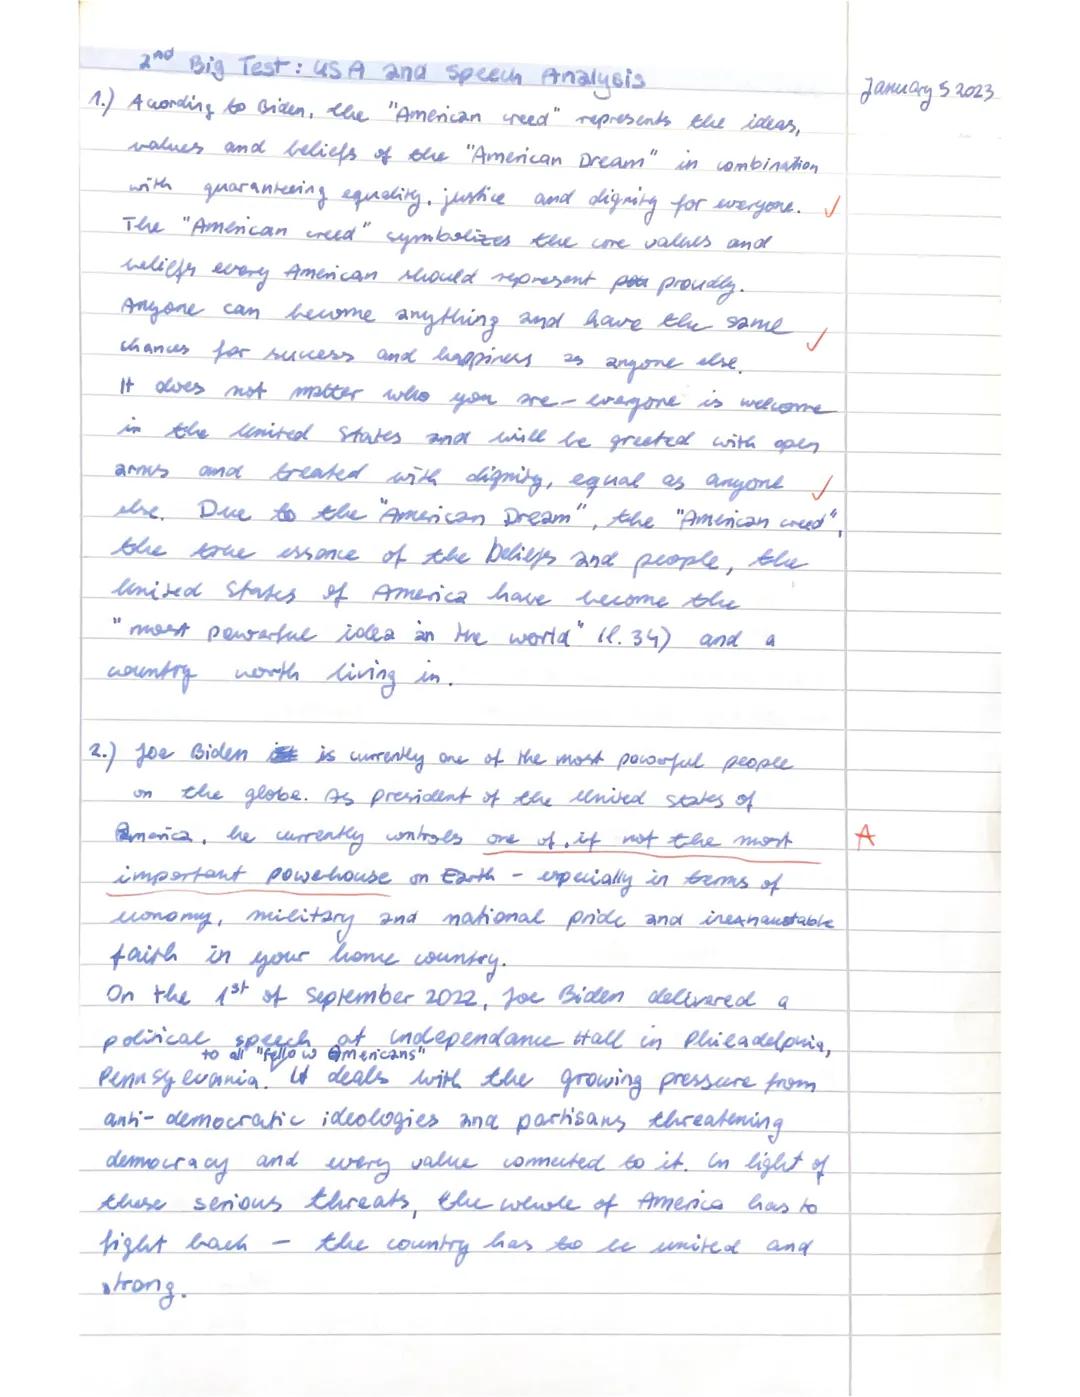 2nd Big Test: USA and Speech Analysis
January 5 2023
1.) According to Biden, the "American creed" represents the ideas,
values and beliefs of the "American Dream" in combination
with guaranteeing equality, justice and dignity for everyone. ✓
The "American creed" symbolizes the core values and
beliefs every American should represent proudly.
Anyone can become anything and have the same ✓
chances for success and happiness as anyone else.
It does not matter who you are - everyone is welcome
in the United States and will be greeted with open
arms and treated with dignity, equal as anyone ✓
else. Due to the "American Dream", the "American creed",
the true essence of the beliefs and people, the
United States of America have become the
"most powerful idea in the world" (l. 34) and a
country worth living in.
2.) Joe Biden is currently one of the most powerful people
on the globe. As president of the United States of
America, he currently controls one of, if not the most A
important powehouse on Earth - especially in terms of
economy, military and national pride and inexhaustable
faith in your home country.
On the 1st of September 2022, Joe Biden delivered a
political speech at Independance Hall in Philadelphia,
to all "fellow Americans"
Pennsylvania. It deals with the growing pressure from
anti-democratic ideologies and partisans threatening
democracy and every value connected to it. In light of
these serious threats, the whole of America has to
fight back - the country has to be united and
strong.